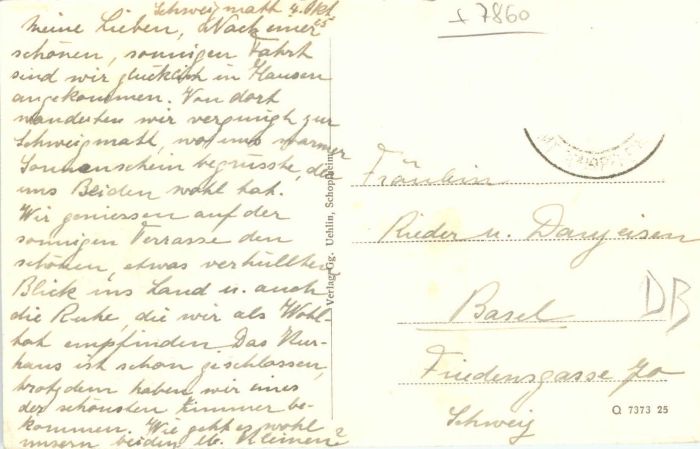 Schweigmatt 4. Okt.
Meine Lieben, Nach einer
schönen, sonnigen Fahrt
sind wir glücklich in Hausen
angekommen. Von dort
wanderten wir vergnügt zur
Schweigmatt, wo uns warmer
Sonnenschein begrüsste, der
uns Beiden wohl tat.
Wir geniessen auf der
sonnigen Terrasse den
schönen, etwas verhüllten
Blick ins Land u. auch
die Ruhe, die wir als Wohl-
tat empfinden. Das Kur-
haus ist schon geschlossen,
trotzdem haben wir eines
der schönsten Zimmer be-
kommen. Wie geht es wohl
unsern beiden lb. Kleinen?
Verlag Gg. Uehlin, Schopfheim
f 7860
Fräulein
Rieder u.
Basel
Friedensgasse 70
Schweiz
DB
Q 7373 25